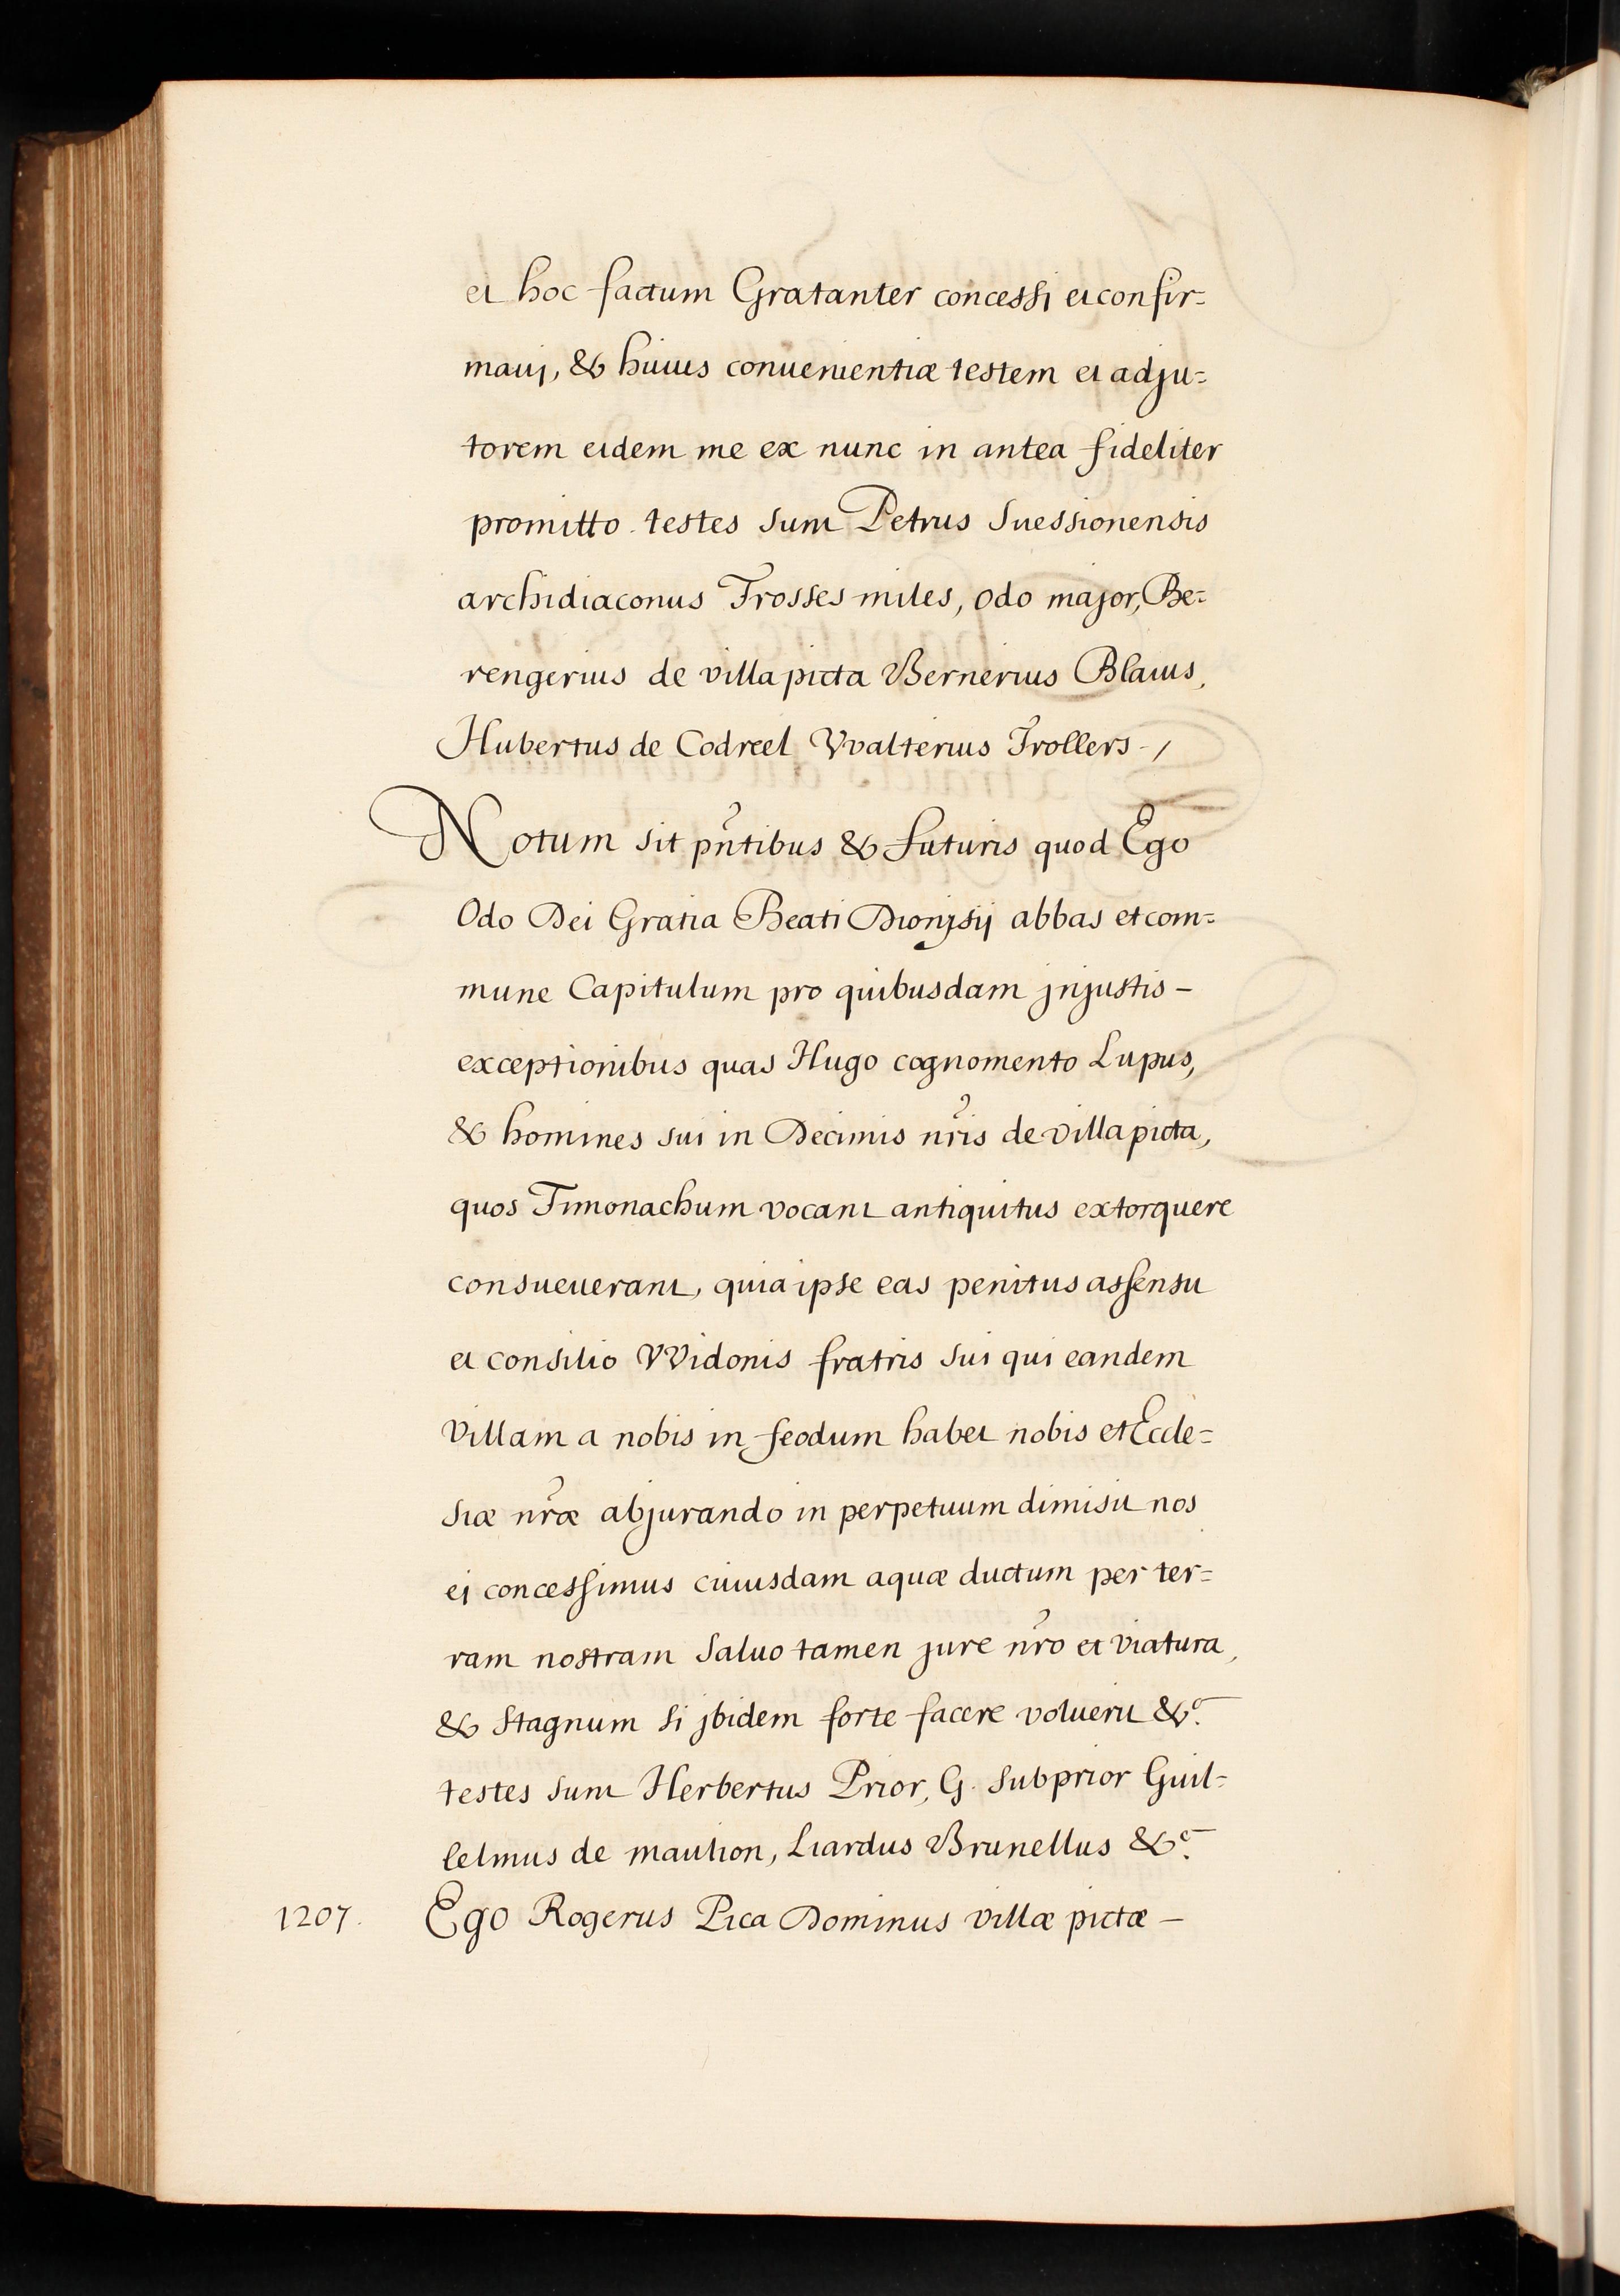 et hoc factum Gratanter concessi et confir=
mavj, & huius conuenientiæ testem et adju=
torem eidem me ex nunc in antea fideliter
promitto. testes sunt Petrus Suessionensis
archidiaconus Trosses miles, odo major, Be=
rengerius de villa picta Bernerius Blauus,
Hubertus de Codreel Vvalterius Trollers - /
Notum sit pñtibus & futuris quod Ego
Odo Dei Gratia Beati Dionjsij abbas et com=
mune Capitulum pro quibusdam jnjustis –
exceptionibus quas Hugo cognomento Lupus,
& homines sui in Decimis nr̃is de villa picta,
quos Timonachum vocant antiquitus extorquere
consueuerant, quia ipse eas penitus assensu
et consilio VVidonis fratris sui qui eandem
villam a nobis in feodum habet nobis et Eccle=
siæ nr̃æ abjurando in perpetuum dimisit nos
ej concessimus cuiusdam aquæ ductum per ter=
ram nostram Saluo tamen jure nr̃o et viatura,
& Stagnum si jbidem forte facere voluerit &c.
testes sunt Herbertus Prior, G. Subprior Guil=
lelmus de maulion, Liardus Brunellus &c.
1207. Ego Rogerus Pica Dominus villæ pictæ –